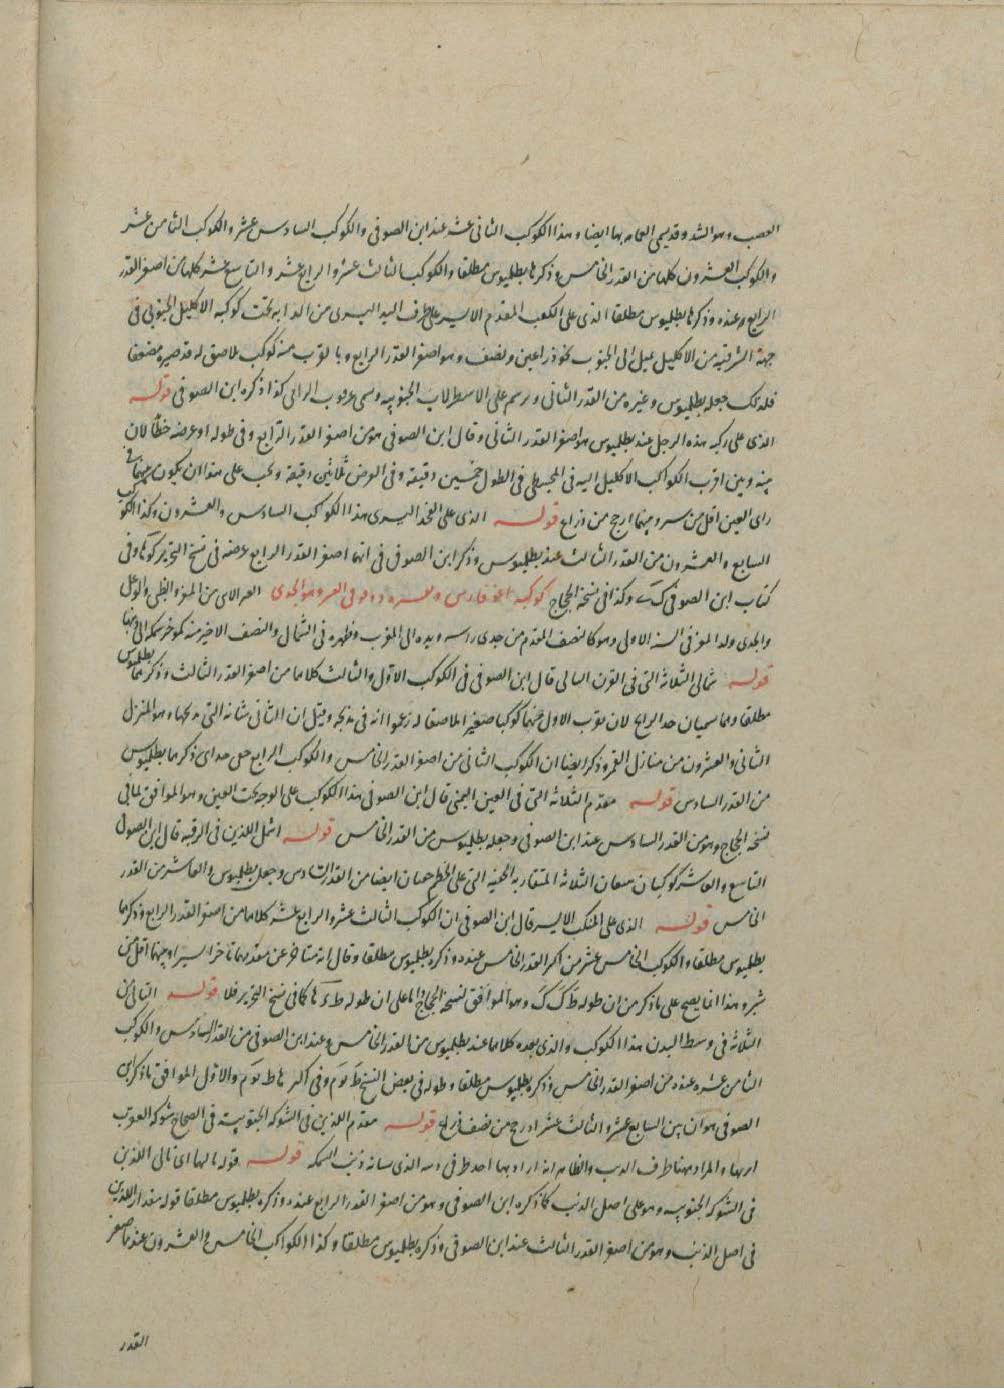 العصب وهو الشد وقد يسمى العمامه بها ايضا وهذا الكوكب الثانى عشر عند ابن الصوفى والكوكب السادس عشر والكوكب الثامن عشر
والكوكب العشرون كلها من القدر الخامس وذكرها بطليموس مطلقا والكوكب الثالث عشر والرابع عشر والتاسع عشر كلها من اصغر القدر
الرابع عنده وذكرها بطليموس مطلقا الذى على الكعب المقدم الايسر على طرف اليد اليسرى من الدابه تحت كوكبه الاكليل الجنوبى فى
جهة الشرقيه من الاكليل يميل الى الجنوب نحو ذراعين ونصف وهو اصغر القدر الرابع وبالقرب منه كوكب ملاصق له قد صيره مضعفا
فلذلك جعله بطليموس وغيره من القدر الثانى ويرسم على الاسطرلاب الجنوبيه ويسمى عرقوب الرامى كذا ذكره ابن الصوفى قوله
الذى على ركبه هذه الرجل عند بطليموس هو اصغر القدر الثانى وقال ابن الصوفى هو من اصغر القدر الرابع وفى طوله او عرضه خطأ لان
بينه وبين اقرب الكواكب الاكليل اليه فى المجسطى فى الطول خمسين دقيقة وفى العرض ثلاثين دقيقة ويجب على هذا ان يكون بينهما فى
راى العين اقل من شبر وبينهما ارجح من ذراع قوله الذى على الفخذ اليسرى هذا الكوكب السادس والعشرون وكذا الكوكب
السابع والعشرون من القدر الثالث عند بطليموس وذكر ابن الصوفى فى انهما اصغر القدر الرابع عرضه فى نسخ التحرير وفى
كتاب ابن الصوفى وكذا فى نسخة الحجاج كوكبه وهو الجدى من المعز والظبى والوعل
والجدى ولد المعز فى السنه الاولى وهو كالنصف المقدم من جدى راسه ويده الى المغرب وظهره فى الشمال والنصف الاخير منه كموخر سمكه الى ذنبها
قوله شمالى الثلاثة التى فى القرن التالى قال ابن الصوفى فى الكوكب الاول والثالث كلاهما من اصغر القدر الثالث وذكرهما بطليموس
مطلقا وهما يسميان سعد الذابح لان بقرب الاول منهما كوكبا صغيرا ملاصقا له زعموا انه فى مذبحه وقيل ان الثانى شاته التى يذبحها وهو المنزل
الثانى والعشرون من منازل القمر وذكر ايضا ان الكوكب الثانى من اصغر القدر الخامس والكوكب الرابع ذكرهما بطليموس
من القدر السادس قوله مقدم الثلاثة التى فى العين اليمنى قال ابن الصوفى هذا الكوكب على الوجه تحت العين وهو الموافق لما فى
نسخة الحجاج وهو من القدر السادس عند ابن الصوفى وجعله بطليموس من القدر الخامس قوله اشمل اللذين فى الرقبه قال ابن الصوفى
التاسع والعاشر كوكبان يتبعان الثلاثة المتقاربه الخفيه التى على الخطم ايضا من القدر السادس وجعل بطليموس العاشر من القدر
الخامس قوله الذى على المنكب الايسر قال ابن الصوفى ان الكوكب الثالث عشر والرابع عشر كلاهما من اصغر القدر الرابع وذكرهما
بطليموس مطلقا والكوكب الخامس عشر من اكبر القدر الخامس عنده وذكره بطليموس مطلقا وقال انه متاخر عن متقدمهما تاخرا يسيرا وبينهما اقل من
شبر وهذا انما يصح على ما ذكر من ان طوله وهو الموافق لنسخة الحجاج واما على ان طوله كما فى نسخ التحرير فلا قوله الثانى من
الثلاثة فى وسط البدن هذا الكوكب والذى بعده كلاهما عند بطليموس من القدر الخامس وعند ابن الصوفى من القدر السادس والكوكب
الثامن عشر عنده من اصغر القدر الخامس وذكره بطليموس مطلقا وطوله فى بعض النسخ وفى اكثرها والاول الموافق ما ذكر ابن
الصوفى هو ان بين السابع عشر والثالث عشر ارجح من نصف ذراع قوله مقدم اللذين فى الشوكه الجنوبيه فى الصحاح شوكه العقرب
ابرتها والمراد بها طرف الذنب والظاهر انه اراد بها احد طرفى ذنب السمكه قوله قوله تاليهما اى تالى اللذين
فى الشوكه الجنوبيه وهو على اصل الذنب كما ذكره ابن الصوفى وهو من اصغر القدر الرابع عنده وذكره بطليموس مطلقا قوله مقدم اللذين
فى اصل الذنب وهو من اصغر القدر الثالث عند ابن الصوفى وذكره بطليموس مطلقا وكذا الكواكب الخامس والعشرون عندهما صغر
القدر